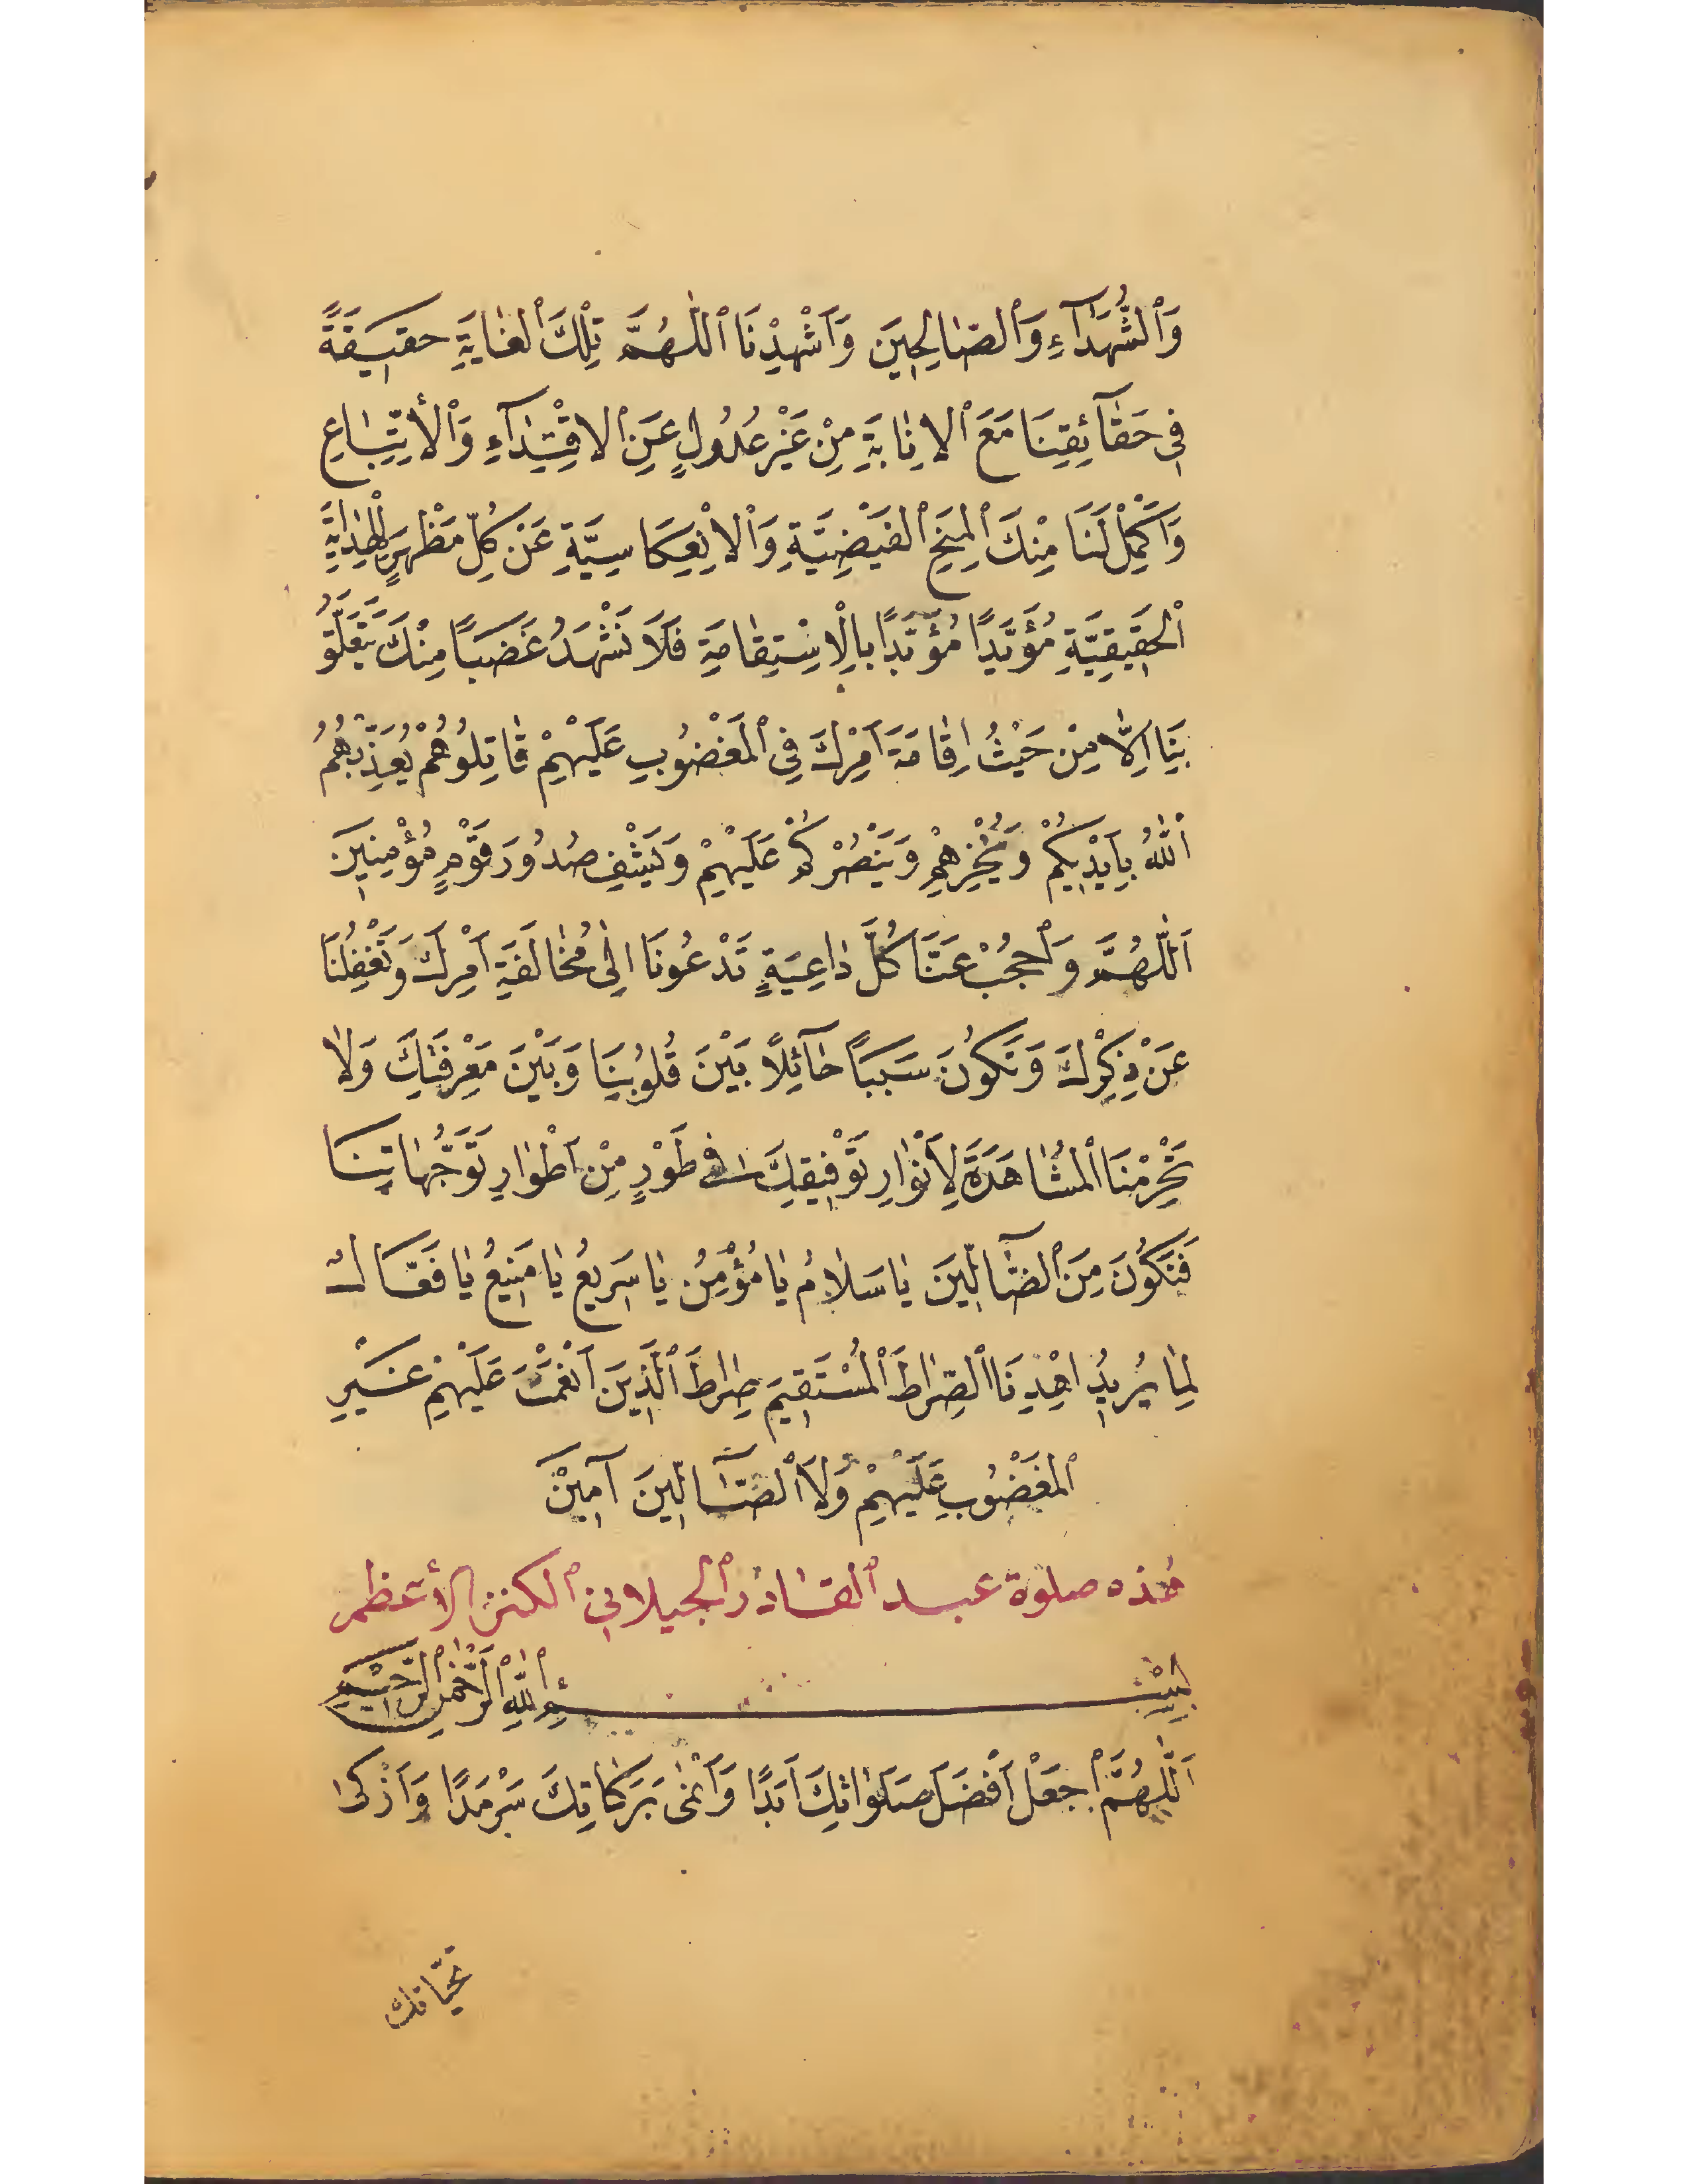 وَٱلشُّهَدَآءِ وَٱلصَّالِحِينَ وَاَشْهِدْنَا ٱللّٰهُمَّ تِلْكَ ٱلْغَايَةِ حَقِيقَةً
فِي حَقَآئِقِنَا مَعَ ٱلاِنَابَةِ مِنْ غَيْرِ عُدُولٍ عَنِ ٱلاِقْتِدَآءِ وَٱلأِتِّبَاعِ
وَاَكْمِلْ لَنَا مِنْكَ ٱلْمِنَحِ ٱلْفَيْضِيَّةِ وَٱلاِنْعِكَاسِيَّةِ عَنْ كُلِّ مَظْهَرٍ لِلْهِدَايَةِ
ٱلْحَقِيقِيَّةِ مُؤَبَّدًا مُؤَيَّدًا بِالْاِسْتِقَامَةِ فَلَا نَشْهَدُ غَضَبًا مِنْكَ يَتَعَلَّقُ
بِنَا اِلَّا مِنْ حَيْثُ اِقَامَةَ اَمْرِكَ فِي ٱلْمَغْضُوبِ عَلَيْهِمْ قَاتِلُوهُمْ يُعَذِّبْهُمُ
ٱللّٰهُ بِاَيْدِيكُمْ وَيُخْزِهِمْ وَيَنْصُرْكُمْ عَلَيْهِمْ وَيَشْفِ صُدُورَ قَوْمٍ مُؤْمِنِينَ
اَللّٰهُمَّ وَٱحْجُبْ عَنَّا كُلَّ دَاعِيَةٍ تَدْعُونَا اِلٰى مُخَالَفَةِ اَمْرِكَ وَتُغْفِلُنَا
عَنْ ذِكْرِكَ وَتَكُونَ سَبَبًا حَآئِلًا بَيْنَ قُلُوبِنَا وَبَيْنَ مَعْرِفَتِكَ وَلَا
تَحْرِمْنَا ٱلْمُشَاهَدَةَ لِأَنْوَارِ تَوْفِيقِكَ فِي طَوْرٍ مِنْ اَطْوَارِ تَوَجُّهَاتِنَا
فَنَكُونَ مِنَ ٱلضَّآلِّينَ يَا سَلَامُ يَا مُؤْمِنُ يَا سَرِيعُ يَا مَنِيعُ يَا فَعَّالُ
لِمَا يُرِيدُ اِهْدِنَا ٱلصِّرَاطَ ٱلْمُسْتَقِيمَ صِرَاطَ ٱلَّذِينَ اَنْعَمْتَ عَلَيْهِمْ غَيْرِ
ٱلْمَغْضُوبِ عَلَيْهِمْ وَلَا ٱلضَّآلِّينَ آمِيْنَ
هٰذه صلوة عبد ٱلقادر ٱلجيلاني ٱلكنز الأعظم
بِسْمِ ٱللّٰهِ ٱلرَّحْمٰنِ ٱلرَّحِيمِ
اَللّٰهُمَّ ٱجْعَلْ اَفْضَلَ صَلَوَاتِكَ اَبَدًا وَاَنْمٰى بَرَكَاتِكَ سَرْمَدًا وَاَزْكٰى
تحيّاتك